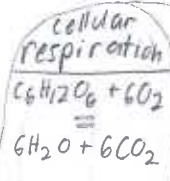 cellular
respiration
C6H12O6 + 6O2
=
6H2O + 6CO2